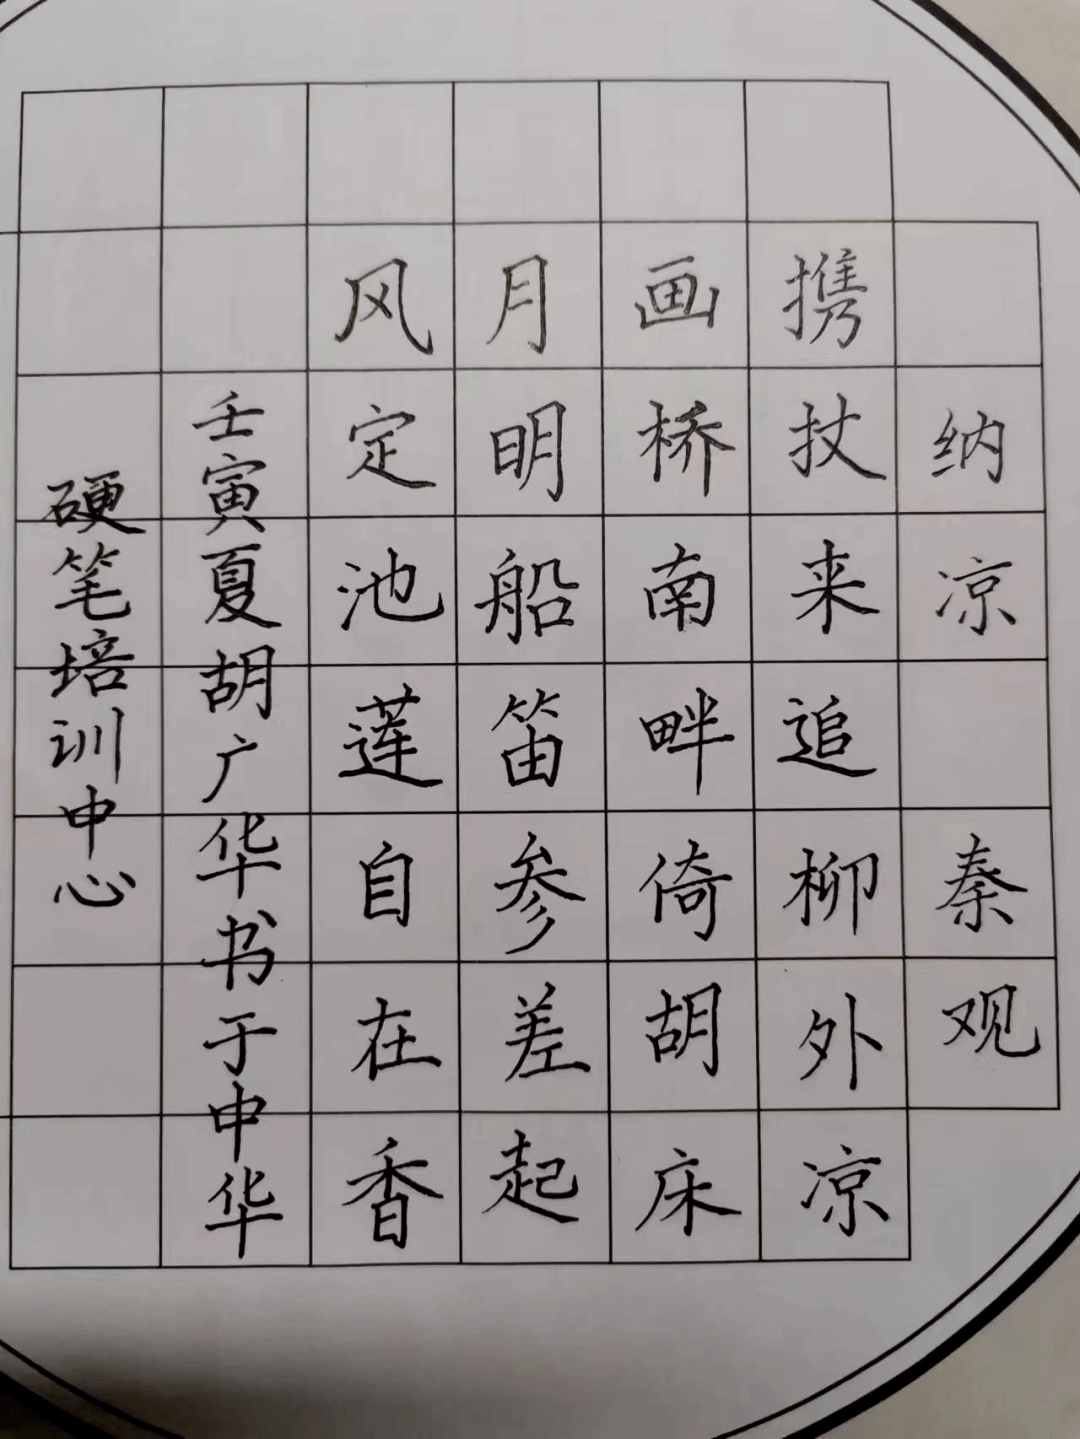 纳凉 秦观
携扙来追柳外凉
画桥南畔倚胡床
月明船笛参差起
风定池莲自在香
壬寅夏胡广华书于中华
硬笔培训中心